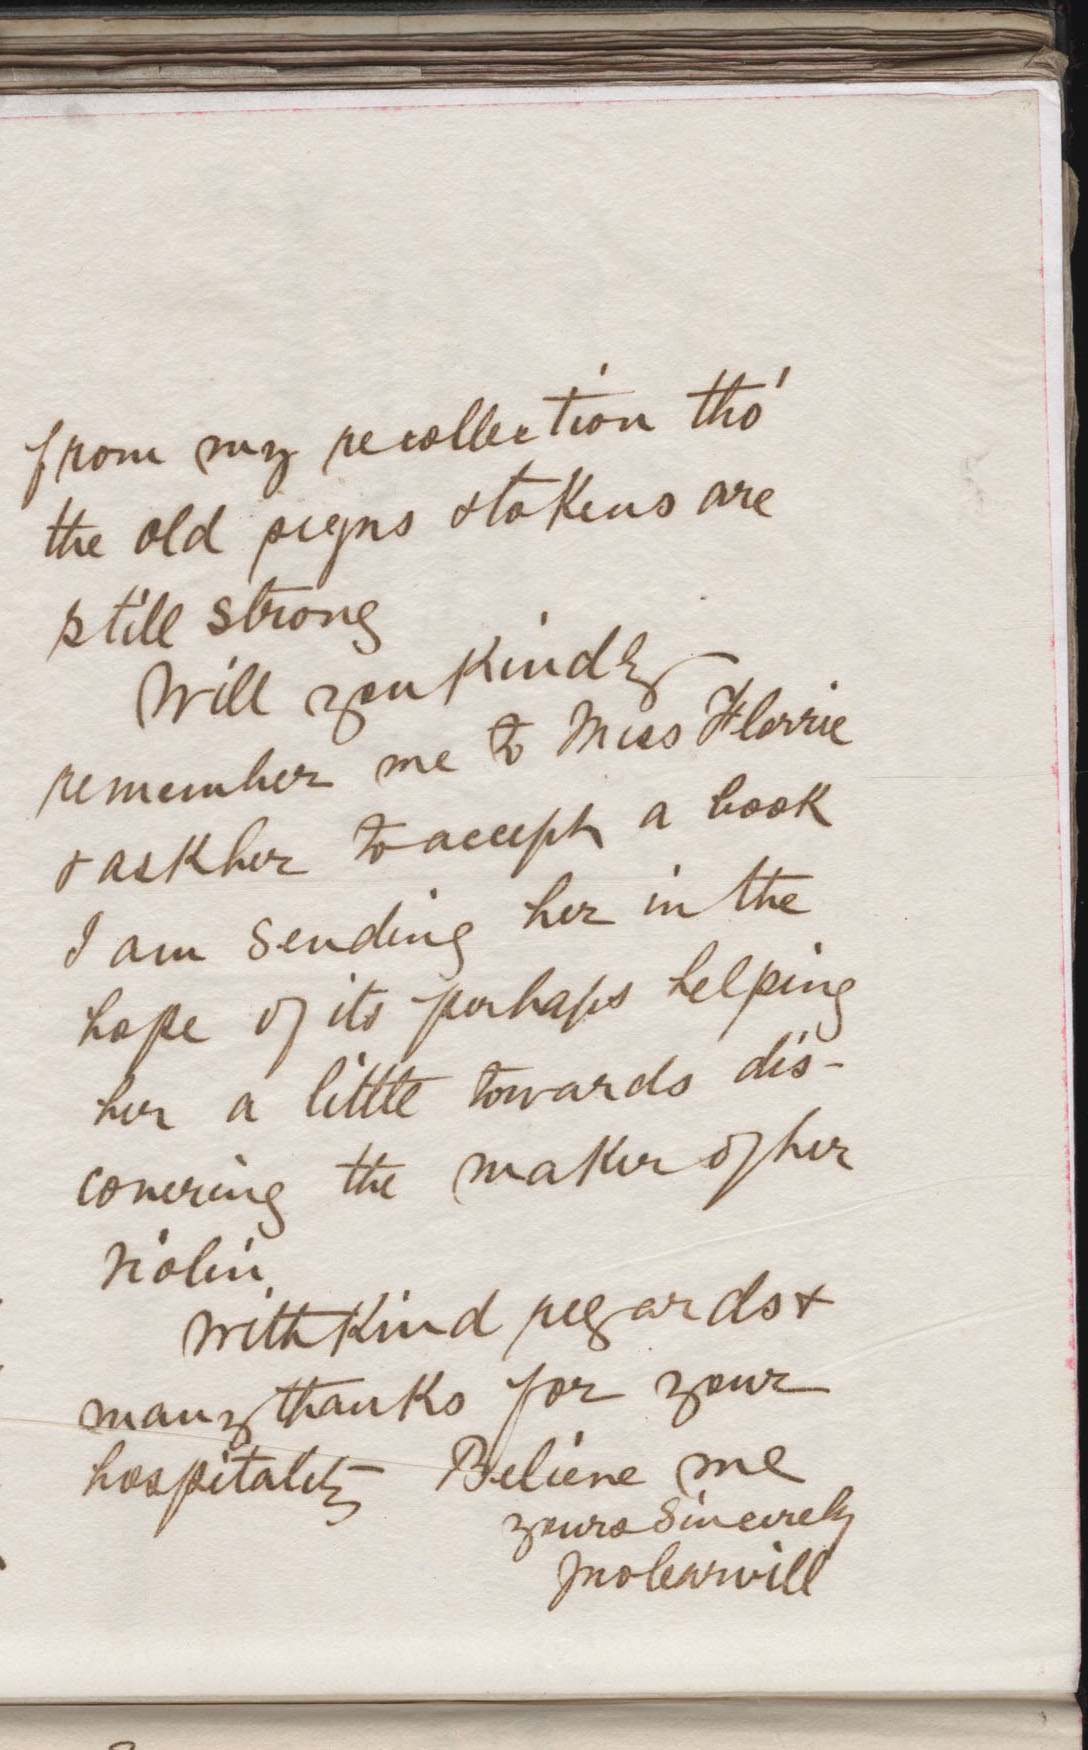 from my recollection tho'
the old signs & tokens are
still strong
Will you kindly
remember me to Miss Florrie
& ask her to accept a book
I am sending her in the
hope of its perhaps helping
her a little towards dis-
covering the maker of her
violin.
With kind regards &
many thanks for your
hospitality Believe me
yours sincerely
Jno Carwill